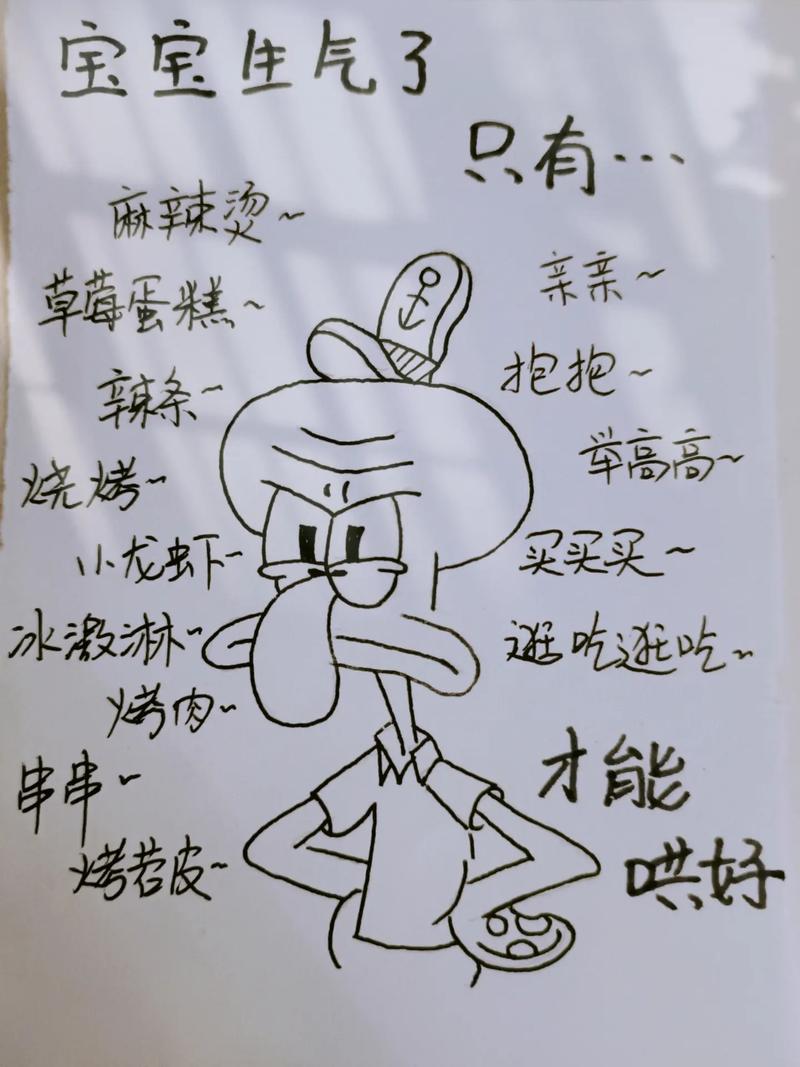 宝宝生气了
只有…
麻辣烫~
草莓蛋糕~
辣条~
烧烤~
小龙虾~
冰激淋~
烤肉~
串串~
烤苕皮~
亲亲~
抱抱~
举高高~
买买买~
逛吃逛吃~
才能
哄好